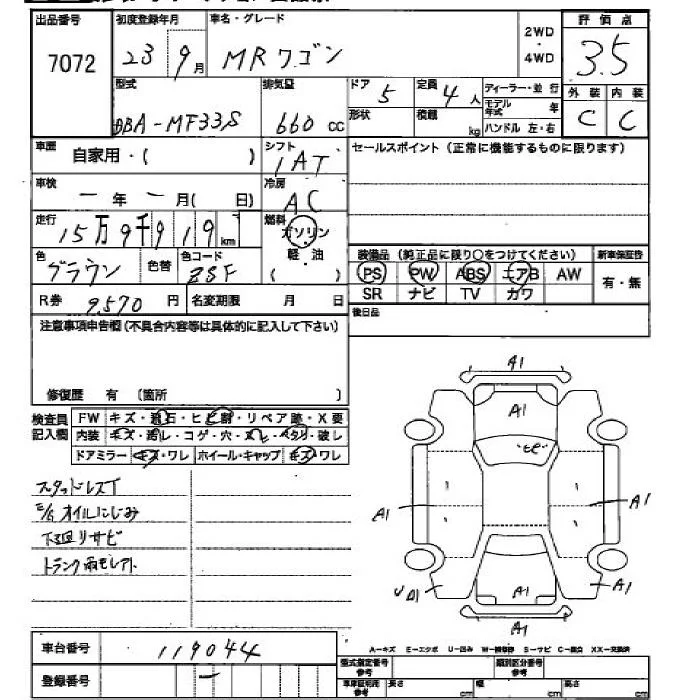 出品番号 初度登録年月 車名・グレード 評価点
7072 23 9月 MRワゴン 2WD・4WD 3.5
型式 排気量 ドア 5 定員 4人 ディーラー・並行 外装 内装
DBA-MF33S 660cc 形状 積載 kg モデル年式 年 ハンドル 左・右 C C
車歴 自家用・( ) シフト 1AT セールスポイント(正常に機能するものに限ります)
車検 一年 一月( 日) 冷房 AC
走行 15万9千919km 燃料 ガソリン
色 ブラウン 色替 色コード ZSF 軽油 ( ) 装備品(純正品に限り○をつけてください) 新車保証書
PS PW ABS エアB AW 有・無
R券 9,570円 名変期限 月 日 SR ナビ TV カワ
注意事項申告欄(不具合内容等は具体的に記入して下さい) 後日品
修復歴 有 (箇所 )
検査員 FW キズ・飛石・ヒビ割・リペア跡・X要
記入欄 内装 キズ・汚レ・コゲ・穴・スレ・ヘタリ・破レ
ドアミラー キズ・ワレ ホイール・キャップ キズ・ワレ
A1
A1
ヒビ
スタッドレスT
E/G オイルにじみ A1 A1
下廻りサビ
トランク雨モレアト
UA1 A1 A1
A1
車台番号 119044
A-キズ E-エクボ U-凹み W-補修跡 S-サビ C-腐食 XX-交換済
登録番号 型式指定番号 参考 類別区分番号 参考
車庫証明用 参考 長さ cm 幅 cm 高さ cm